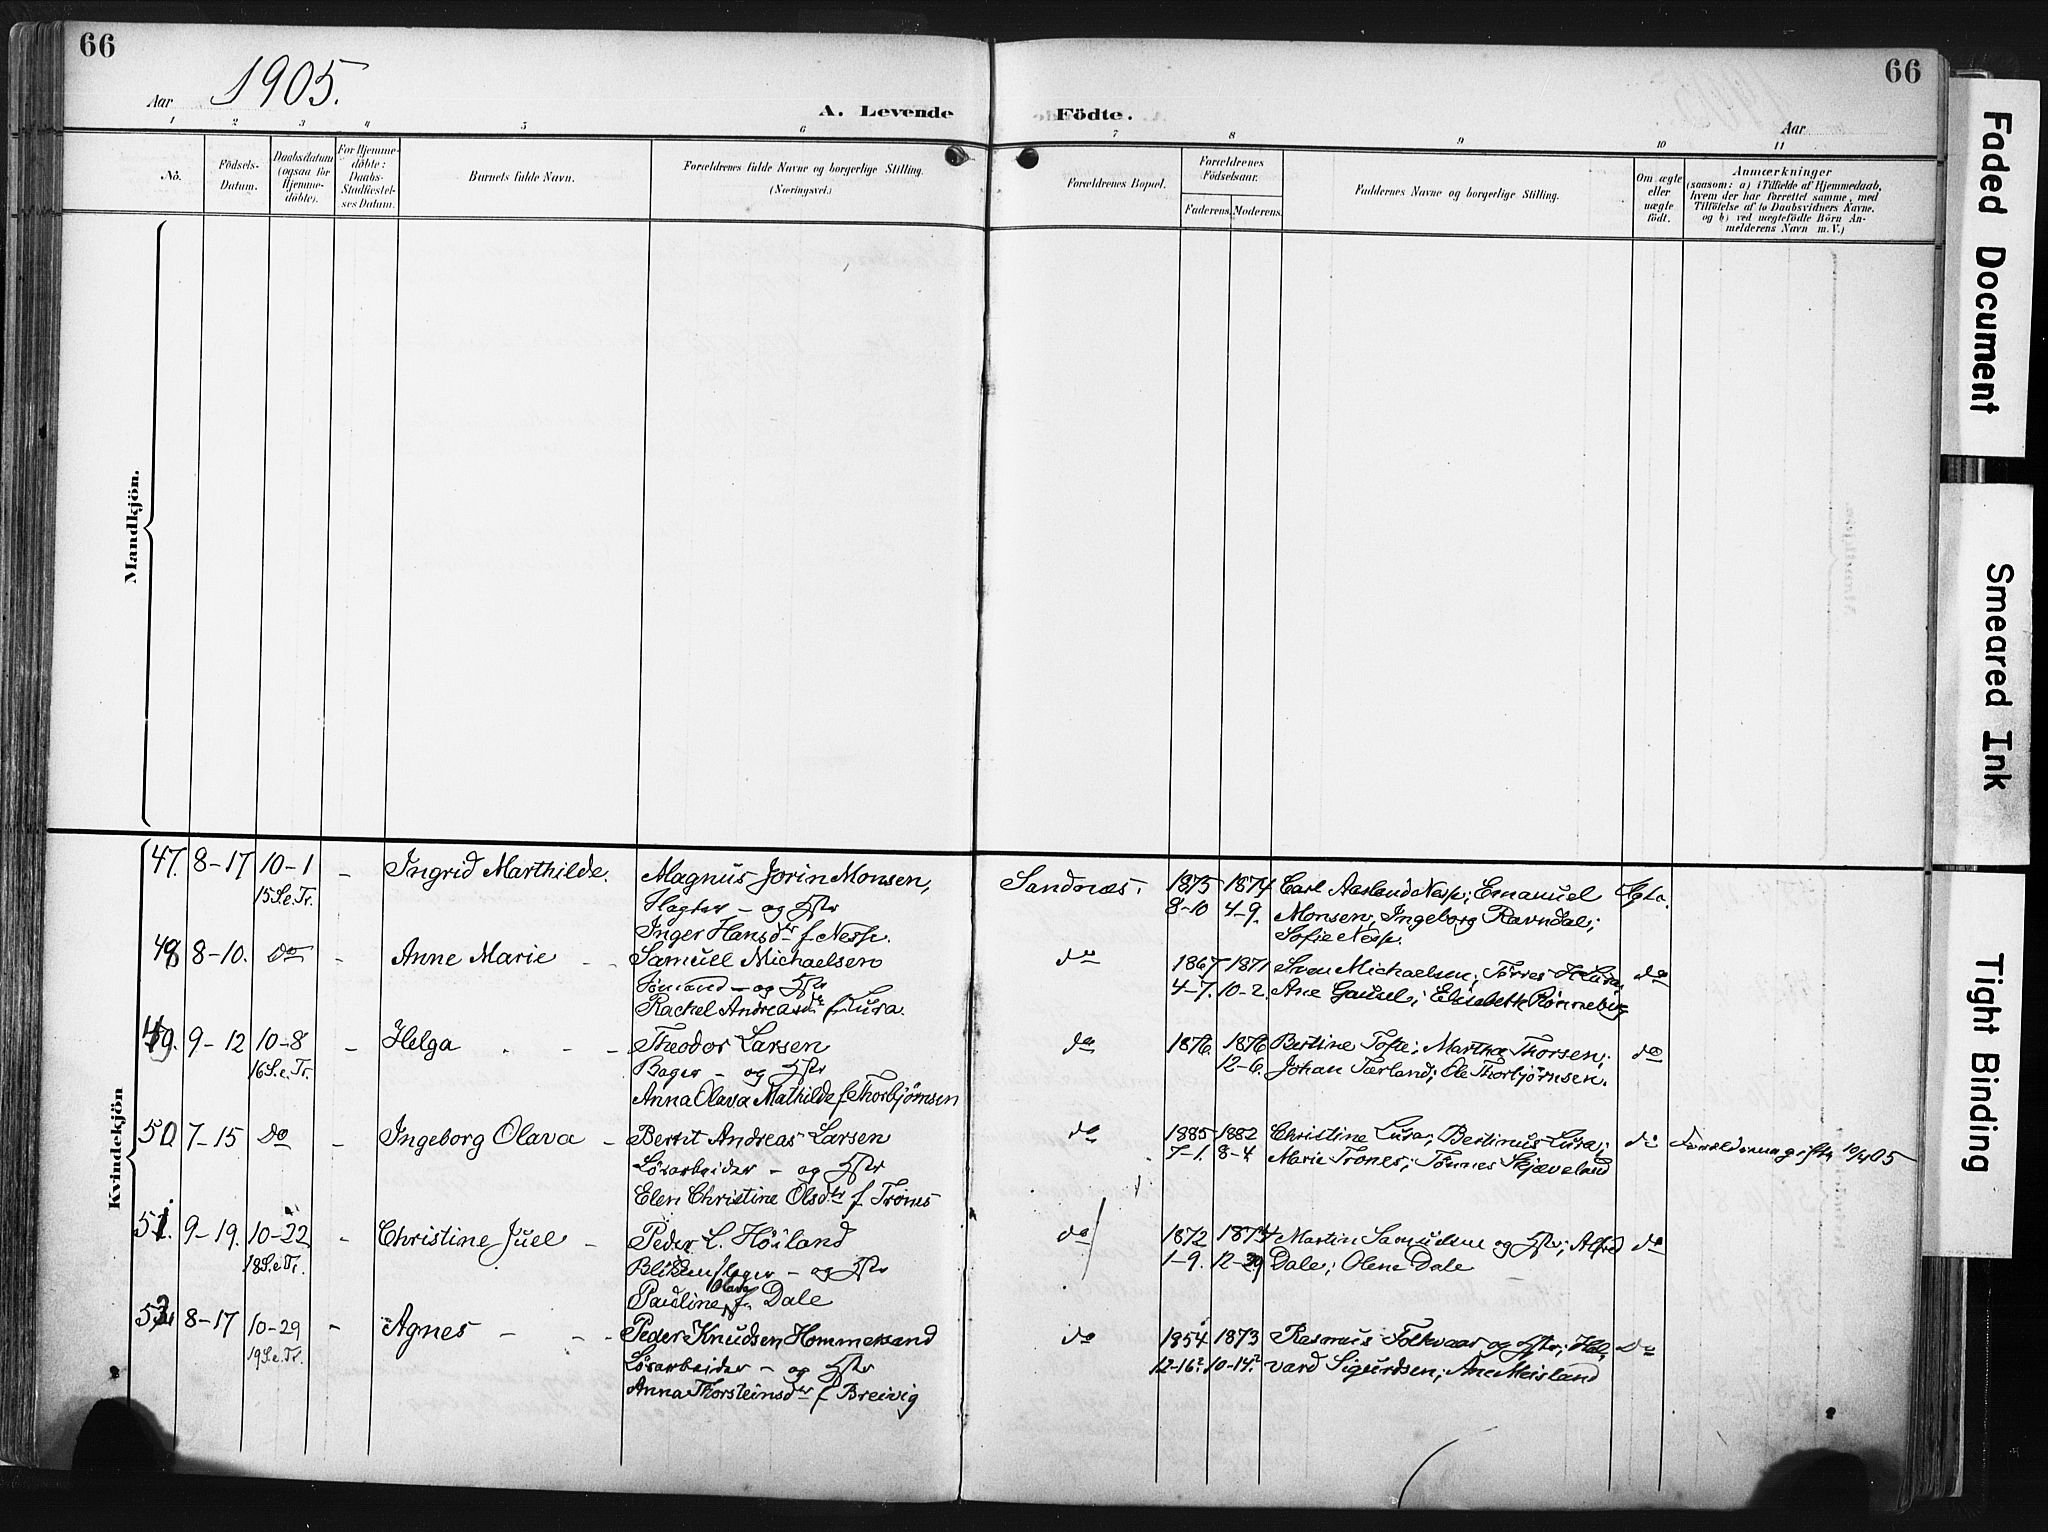 66
66
Aar 1905.
A. Levende Födte.
Aar
1 2 3 4 5 6 7 8 9 10 11
No.
Födsels-
Datum.
Daabsdatum
(ogsaa for
Hjemme-
döbte).
For Hjemme-
döbte:
Daabs-
Stadfæstel-
ses Datum.
Barnets fulde Navn.
Forældrenes fulde Navne og borgerlige Stilling.
(Næringsvei.)
Forældrenes Bopæl.
Forældrenes
Födselsaar.
Faderens. Moderens.
Faddernes Navne og borgerlige Stilling.
Om ægte
eller
uægte
födt.
Anmærkninger
(saasom: a) i Tilfælde af Hjemmedaab,
hvem der har forrettet samme, med
Tilföielse af to Daabsvidners Navne.
og b) ved uegtefödte Börn An-
melderens Navn m. V.)
Mandkjön.
Kvindekjön
47. 8-17 10-1 - Ingrid Marthilde. Magnus Jorin Monsen, Sandnæs. 1875 1874 Carl Aasland Nesse; Emanuel
15 S.e.Tr. - og Hstr 8-10 4-9. Monsen, Ingeborg Ravndal;
Inger Hansdtr f. Nesse. Sofie Nesse.
48 8-10. Do - Anne Marie - - Samuel Michaelsen do 1867 1871 Sven Michaelsen; Tørres Lura, do
Sømand - og Hstr 4-7. 10-2. Ane Gausel; Elisabeth Rønneberg
Rachel Andreasdtr f. Lura.
49. 9-12 10-8 - Helga - - Theodor Larsen do 1876. 1876 Bertine Tofte; Martha Thorsen; do
16 S.e.Tr. Bager - og Hstr 12-6. Johan Tærland; Ole Thorbjørnsen.
Anna Olava Mathilde f. Thorbjørnsen
50 7-15 Do - Ingeborg Olava - Bernt Andreas Larsen do 1885 1882 Christine Lura; Bertinus Lura; do Forældrene gifte 10/4 05
Løsarbeider - og Hstr 7-1. 8-4 Marie Trones; Tønnes Skjæveland
Elen Christine Olsdtr f. Trones
51. 9-19. 10-22 - Christine Juel - Peder L. Høiland do 1872 1874 Martin Samuelsen og Hstr; Alfred do
18 S.e.Tr. Blikkenslager - og Hstr 1-9. 12-29 Dale; Olene Dale
Pauline Olava f. Dale
52 8-17 10-29 - Agnes - - Peder Knudsen Hommersand do 1854 1873 Rasmus Folkvaar og Hstr; Hal- Do
19 S.e.Tr. Løsarbeider - og Hstr 12-16? 10-14? vard Sigurdsen; Ane Meisland
Anna Thorsteinsdtr f. Breivig
Faded Document
Smeared Ink
Tight Binding